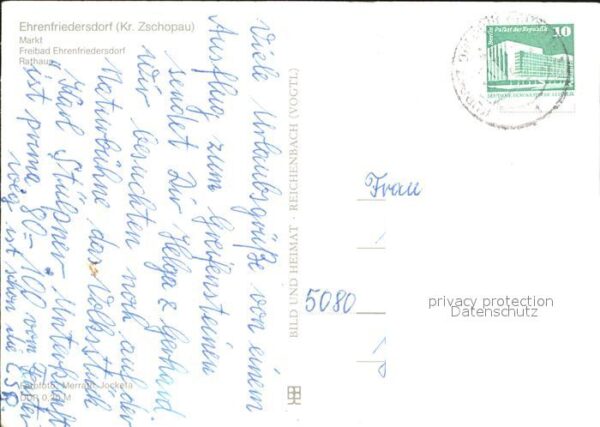 Ehrenfriedersdorf (Kr. Zschopau)
Markt
Freibad Ehrenfriedersdorf
Rathaus
Viele Urlaubsgrüße von einem
Ausflug zum Greifensteinen
sendet Dir Helga & Gerhard
Wir besuchten noch auf der
Naturbühne das Volksstück
"Karl Stülpner" Unterkunft
ist prima 80-100 vom
weg ist schon die ČSR.
BILD UND HEIMAT REICHENBACH (VOGTL)
Berlin Palast der Republik
10
DEUTSCHE DEMOKRATISCHE REPUBLIK
Frau
5080
privacy protection
Datenschutz
Farbfoto: Jocketa
DDR 0,20 M